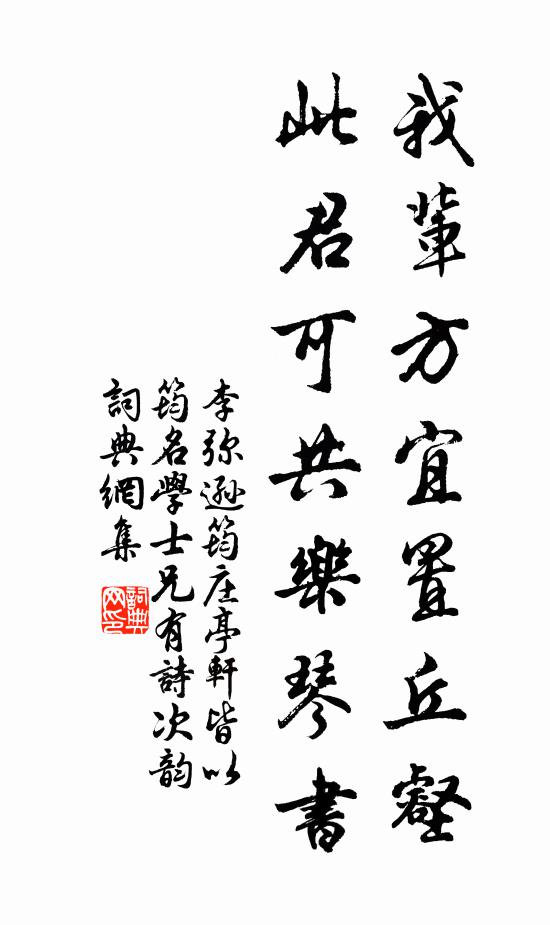 我輩方宜置丘壑
此君可共樂琴書
李弥遜筠庄亭軒皆以
筠名學士兄有詩次韵
詞典網集
詞典网印